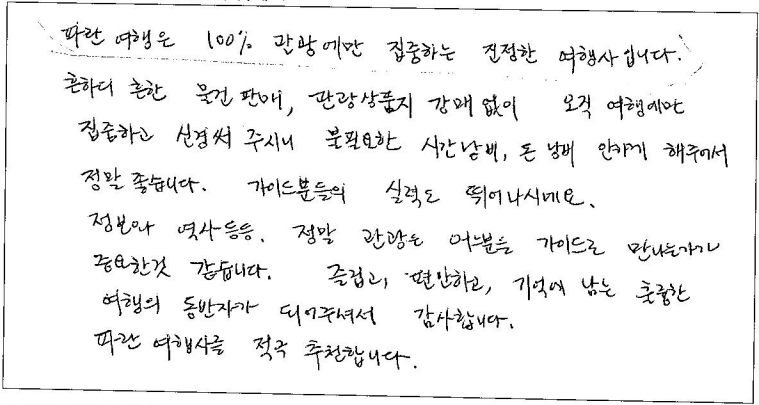 파란 여행은 100% 관광에만 집중하는 진정한 여행사입니다.
흔하디 흔한 물건 판매, 관광상품지 강매 없이 오직 여행에만
집중하고 신경써 주시니 불필요한 시간낭비, 돈 낭비 안하게 해주어서
정말 좋습니다. 가이드분들의 실력도 뛰어나시네요.
정보와 역사등등. 정말 관광은 어느분을 가이드로 만나는가가
중요한것 같습니다. 즐겁고, 편안하고, 기억에 남는 훌륭한
여행의 동반자가 되어주셔서 감사합니다.
파란 여행사를 적극 추천합니다.